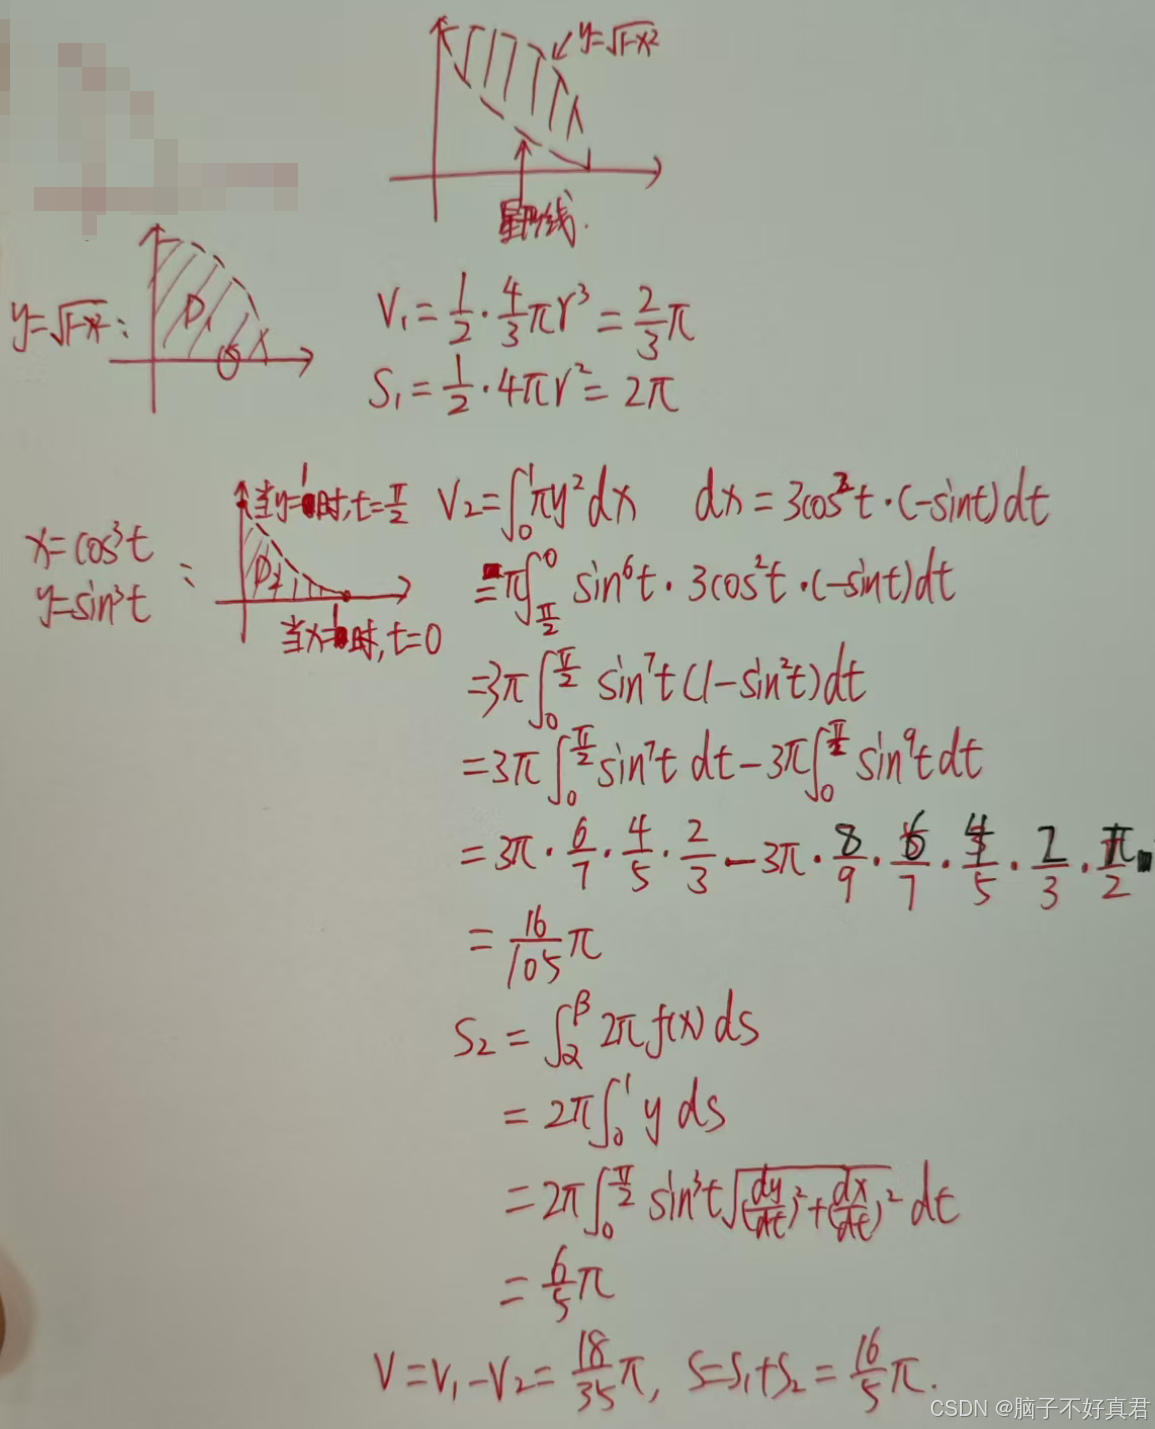 y=√1-x²
星形线.
y=√1-x² :
D₁
V₁=1/2·4/3πr³=2/3π
S₁=1/2·4πr²=2π
x=cos³t
y=sin³t :
当y=1时,t=π/2
D₂
当x=1时,t=0
V₂=∫₀¹πy²dx dx=3cos²t·(-sint)dt
=π∫_{π/2}^0 sin⁶t·3cos²t·(-sint)dt
=3π∫₀^{π/2} sin⁷t(1-sin²t)dt
=3π∫₀^{π/2} sin⁷t dt-3π∫₀^{π/2} sin⁹t dt
=3π·6/7·4/5·2/3-3π·8/9·6/7·4/5·2/3·π/2
=16/105π
S₂=∫_α^β 2πf(x)ds
=2π∫₀¹ y ds
=2π∫₀^{π/2} sin³t√(dy/dt)²+(dx/dt)² dt
=6/5π
V=V₁-V₂=18/35π, S=S₁+S₂=16/5π.
CSDN @脑子不好真君